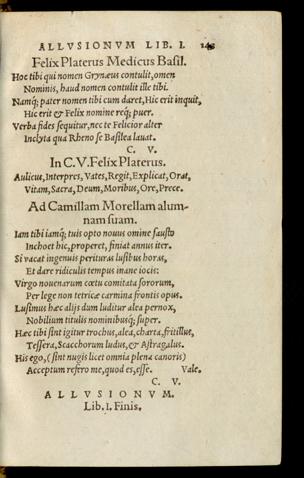 ALLVSIONVM LIB. I. 143
Felix Platerus Medicus Basil.
Hoc tibi qui nomen Grynæus contulit, omen
Nominis, haud nomen contulit ille tibi.
Namq; pater nomen tibi cum daret, Hic erit inquit,
Hic erit & Felix nomine req; puer.
Verba fides sequitur, nec te Felicior alter
Inclyta qua Rheno se Basilea lauat.
C. V.
In C.V. Felix Platerus.
Aulicus, Interpres, Vates, Regit, Explicat, Orat,
Vitam, Sacra, Deum, Moribus, Ore, Prece.
Ad Camillam Morellam alum-
nam suam.
Iam tibi iamq; tuis opto nouus omine fausto
Inchoet hic, properet, finiat annus iter.
Si vacat ingenuis perituras lusibus horas,
Et dare ridiculis tempus inane iocis:
Virgo nouenarum cœtu comitata sororum,
Per lege non tetricæ carmina frontis opus.
Lusimus hæc alijs dum luditur alea pernox,
Nobilium titulis nominibusq; super.
Hæc tibi sint igitur trochus, alea, charta, fritillus,
Tessera, Scacchorum ludus, & Astragalus.
His ego, (sint nugis licet omnia plena canoris)
Acceptum refero me, quod es, esse. Vale.
C. V.
ALLVSIONVM.
Lib. I. Finis.